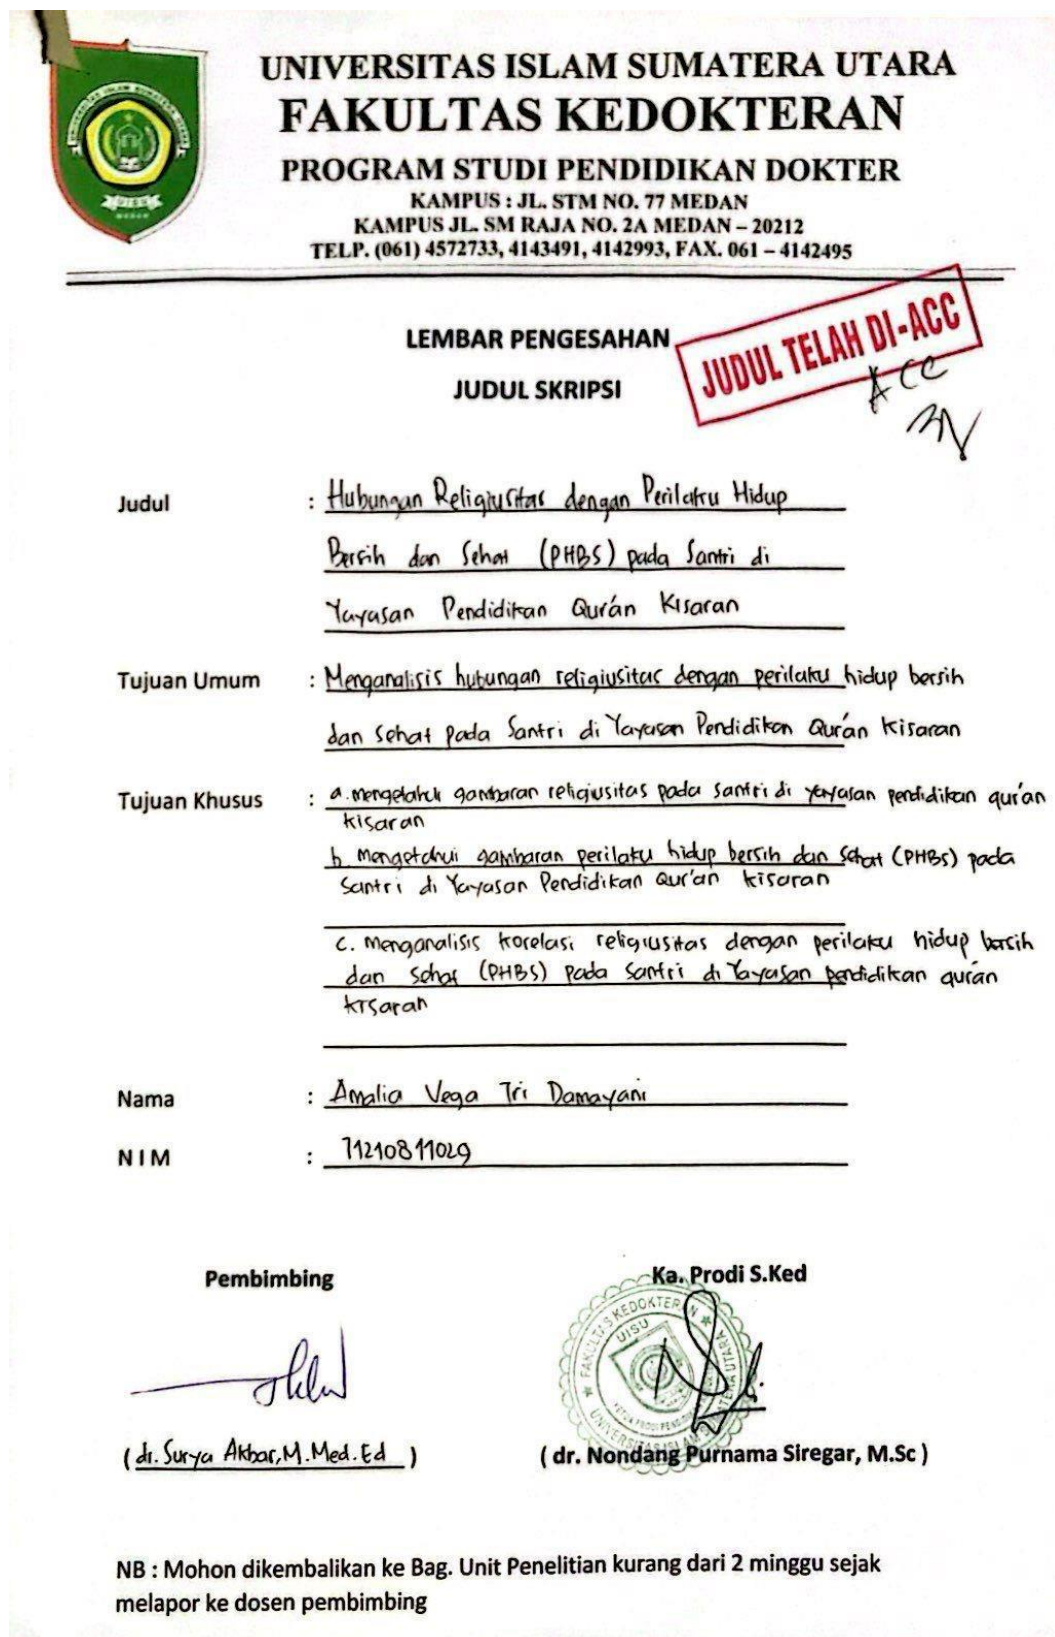 UNIVERSITAS ISLAM SUMATERA UTARA
FAKULTAS KEDOKTERAN
PROGRAM STUDI PENDIDIKAN DOKTER
KAMPUS : JL. STM NO. 77 MEDAN
KAMPUS JL. SM RAJA NO. 2A MEDAN – 20212
TELP. (061) 4572733, 4143491, 4142993, FAX. 061 – 4142495
LEMBAR PENGESAHAN
JUDUL SKRIPSI
JUDUL TELAH DI-ACC
ACC
Judul : Hubungan Religiusitas dengan Perilaku Hidup
Bersih dan Sehat (PHBS) pada Santri di
Yayasan Pendidikan Qur'an Kisaran
Tujuan Umum : Menganalisis hubungan religiusitas dengan perilaku hidup bersih
dan sehat pada Santri di Yayasan Pendidikan Qur'an Kisaran
Tujuan Khusus : a. mengetahui gambaran religiusitas pada santri di yayasan pendidikan qur'an
kisaran
b. Mengetahui gambaran perilaku hidup bersih dan sehat (PHBS) pada
Santri di Yayasan Pendidikan Qur'an kisaran
c. Menganalisis korelasi religiusitas dengan perilaku hidup bersih
dan sehat (PHBS) pada santri di Yayasan pendidikan qur'an
kisaran
Nama : Amalia Vega Tri Damayani
NIM : 71210811029
Pembimbing
Ka. Prodi S.Ked
FAKULTAS KEDOKTERAN
UISU
UNIVERSITAS ISLAM SUMATERA UTARA
( dr. Surya Akbar, M.Med.Ed )
( dr. Nondang Purnama Siregar, M.Sc )
NB : Mohon dikembalikan ke Bag. Unit Penelitian kurang dari 2 minggu sejak
melapor ke dosen pembimbing